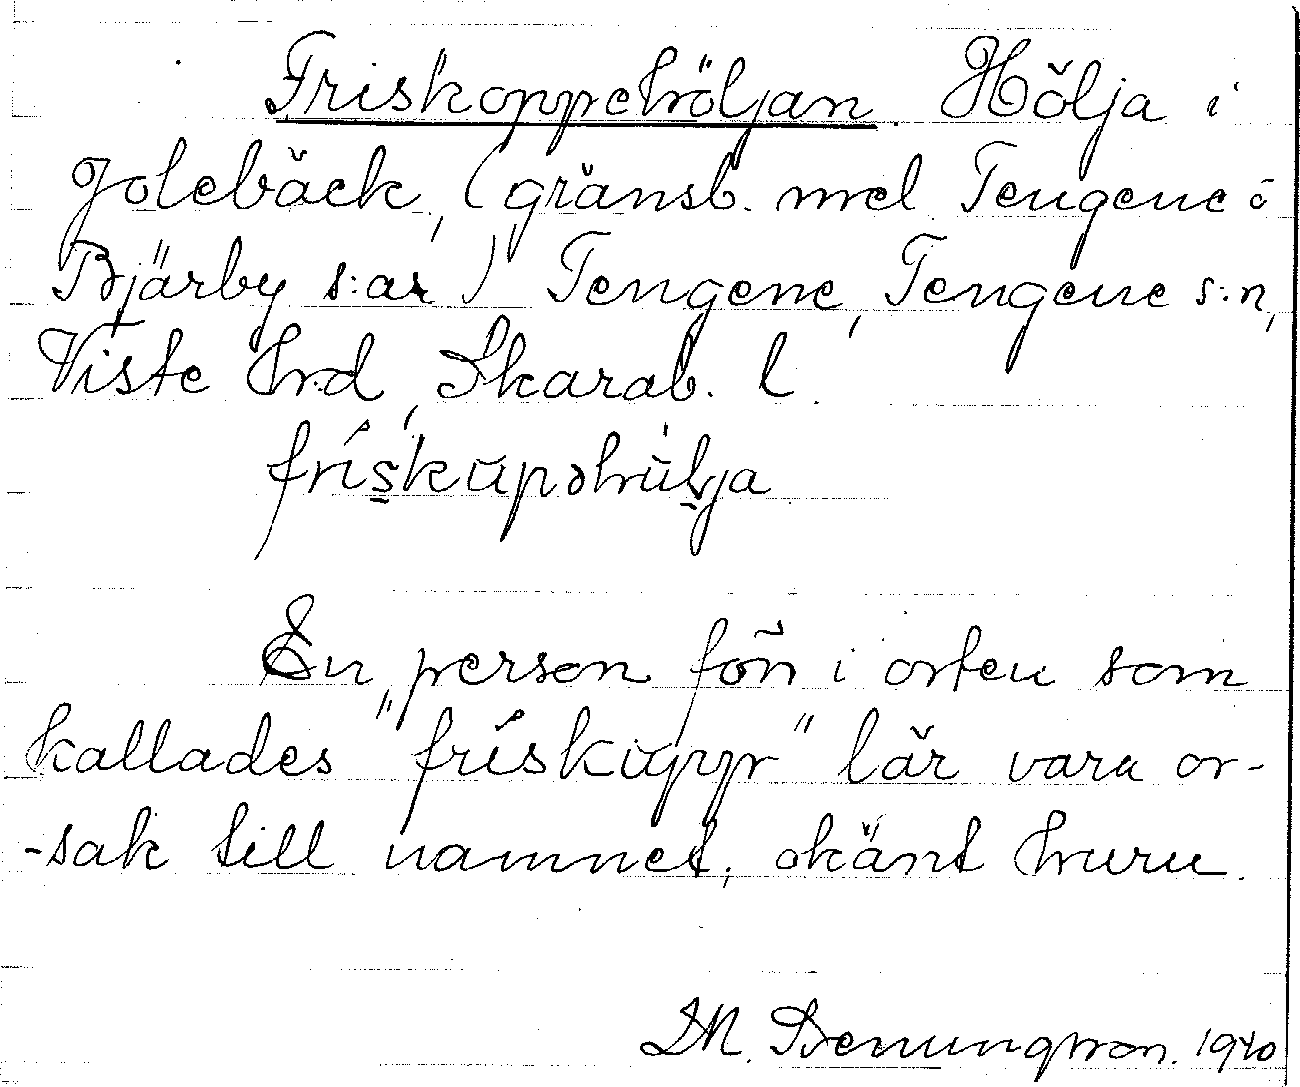 Friskoppehöljan. Hölja i
Jolebäck, (gränsb. mel. Tengene o
Bjärby s:ar) Tengene, Tengene s:n,
Viste hrd, Skarab. l.
En person förr i orten som
kallades "friskupp" lär vara or-
-sak till namnet, okänt huru.
1940